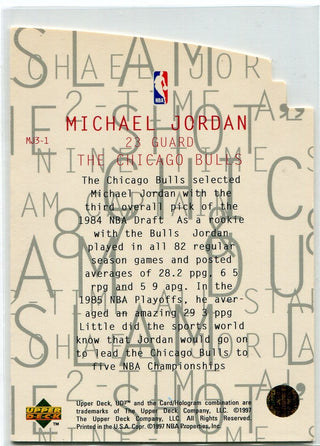 MICHAEL JORDAN
MJ3-1
23 GUARD
THE CHICAGO BULLS
The Chicago Bulls selected
Michael Jordan with the
third overall pick of the
1984 NBA Draft. As a rookie
with the Bulls Jordan
played in all 82 regular
season games and posted
averages of 28.2 ppg, 6 5
rpg and 5 9 apg. In the
1985 NBA Playoffs, he aver-
aged an amazing 29 3 ppg
Little did the sports world
know that Jordan would go on
to lead the Chicago Bulls to
five NBA Championships
UPPER DECK
TM
Upper Deck, UD3™ and the Card/Hologram combination are
trademarks of The Upper Deck Company, LLC. ©1997
The Upper Deck Company, LLC. All Rights Reserved.
Printed in the U.S.A. Copr. ©1997 NBA Properties, Inc.